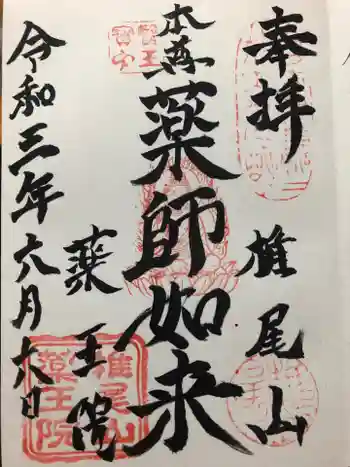 奉拝
椎尾山
本尊
薬師如来
薬王院
令和三年六月六日
椎尾山
薬王院